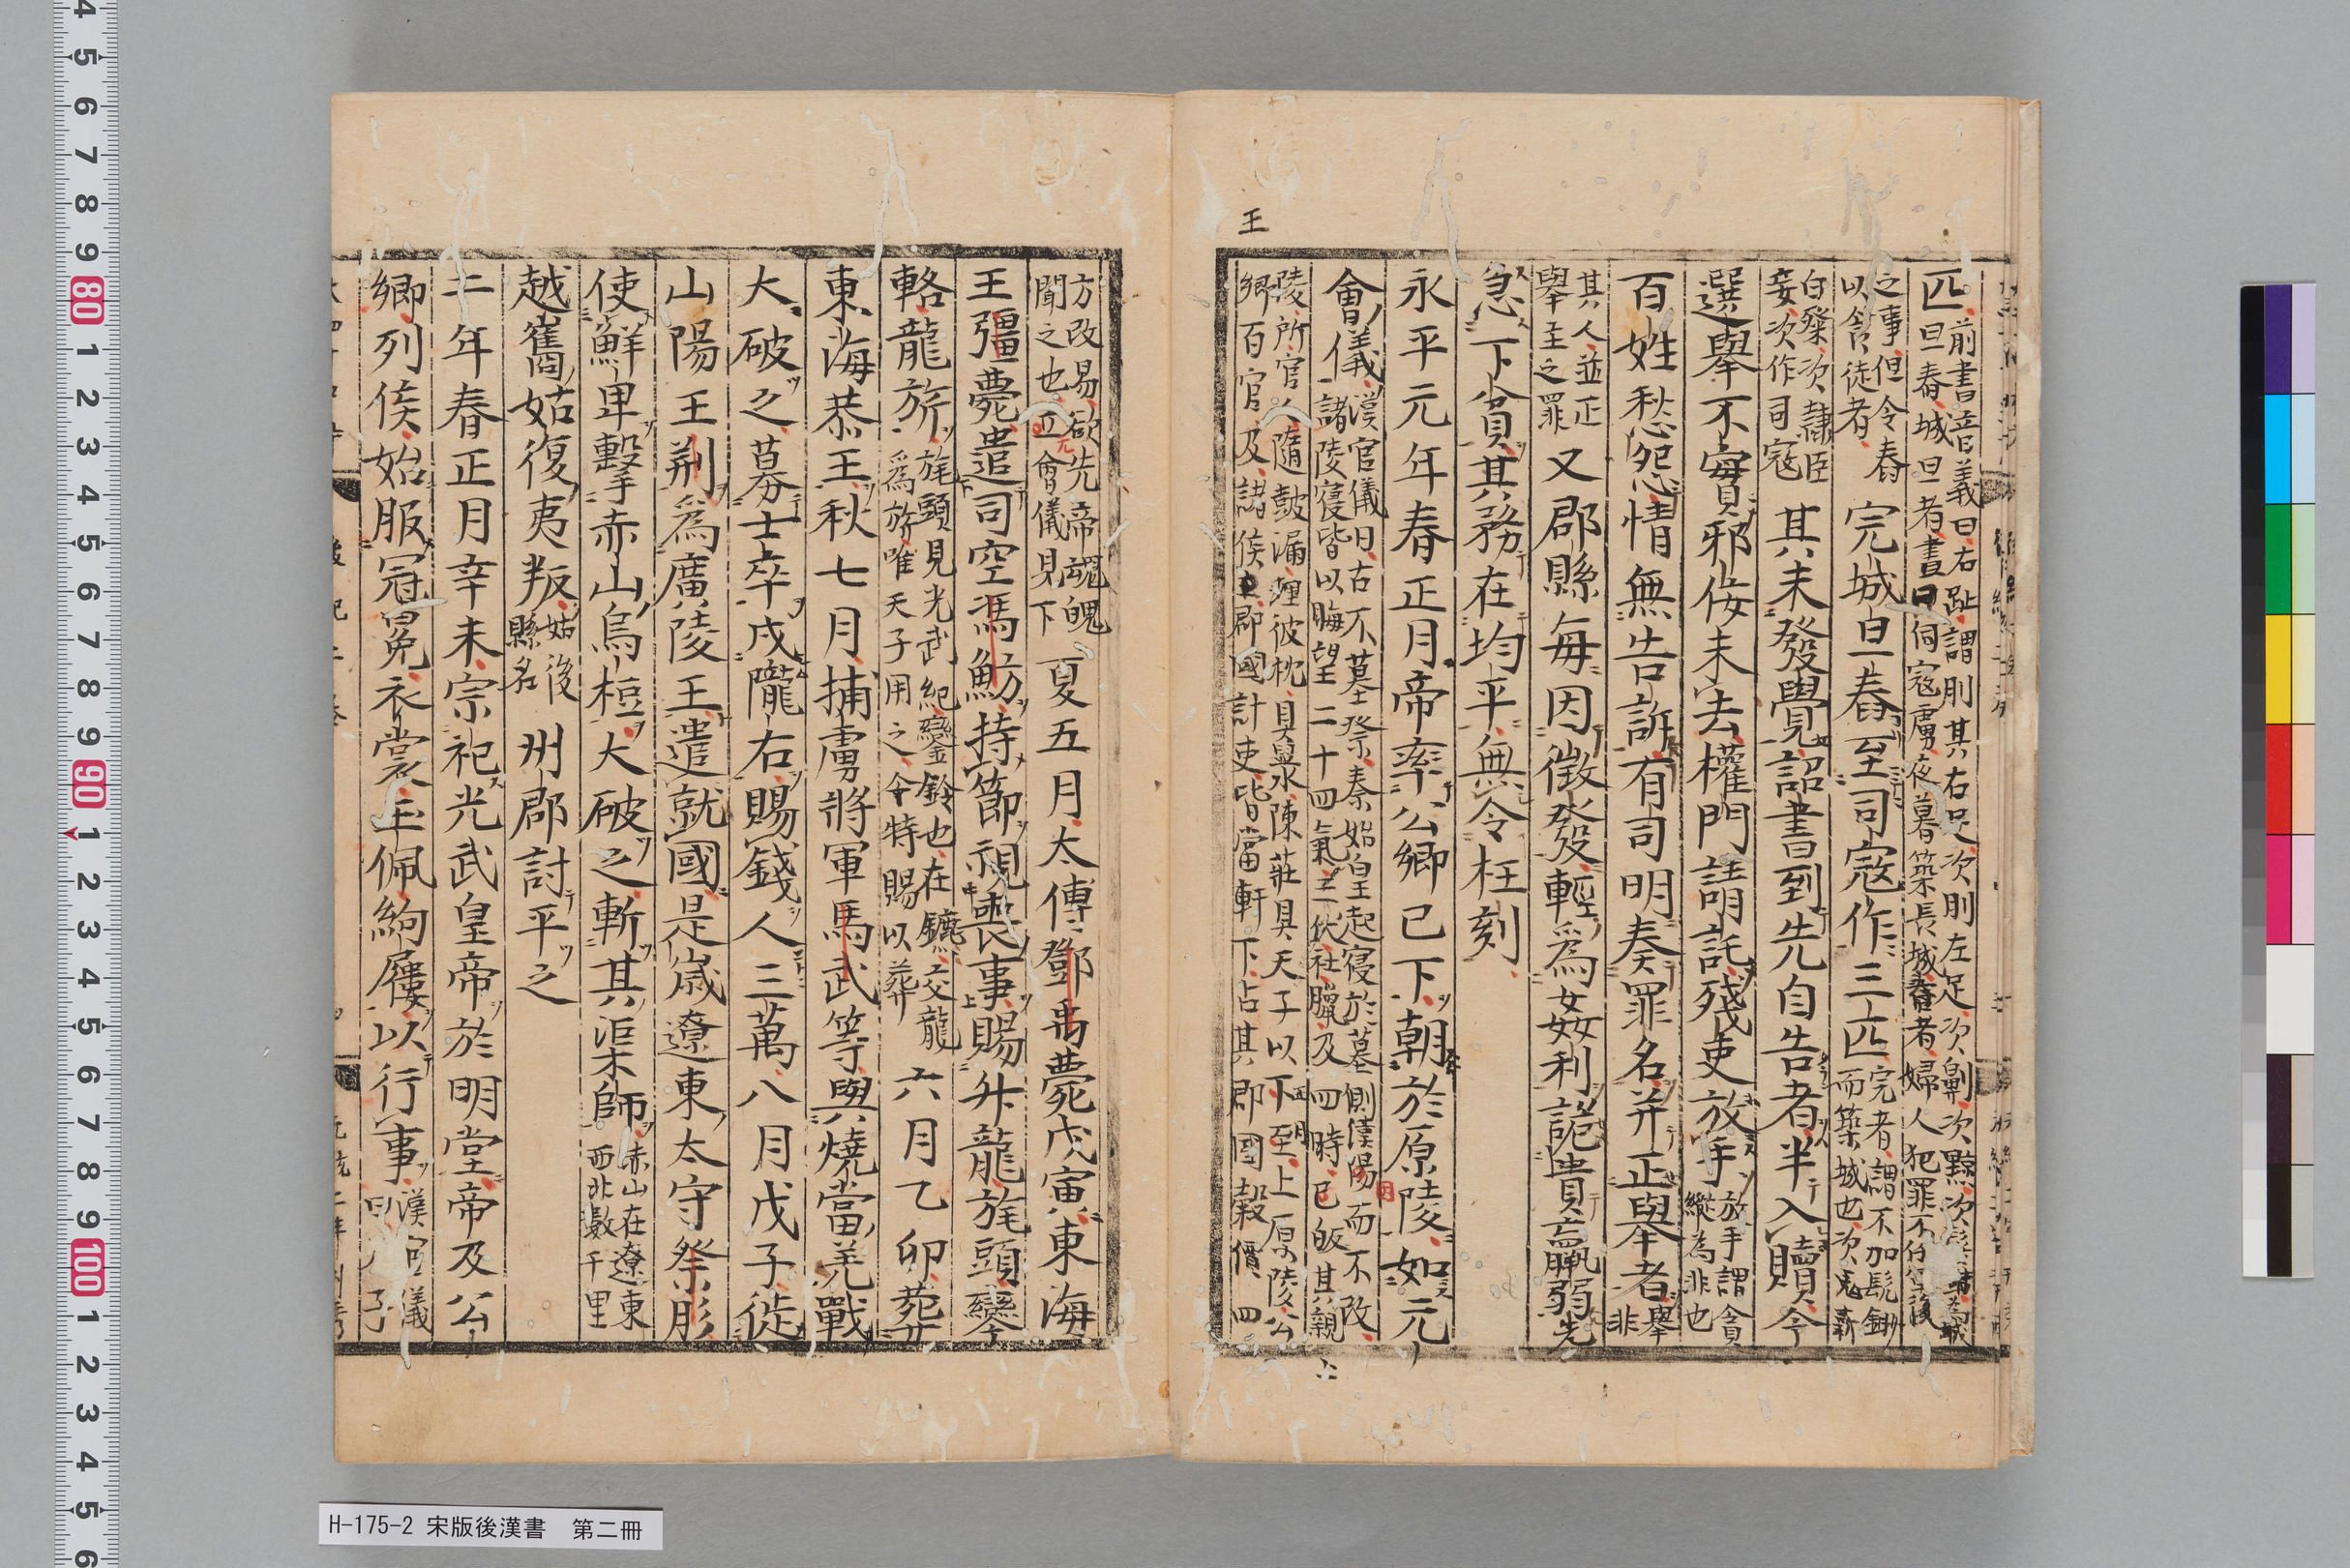 王
匹前書音義曰右趾謂刖其右足次刖左足次劓次黥次
旦舂城旦者晝日伺寇虜夜暮築長城舂者婦人犯罪不
之事但令舂
以食徒者
完城旦舂至司寇作三匹完者謂不加髡鉗
而築城也次鬼薪
白粲次隷臣
妾次作司寇
其未發覺詔書到先自告者半入贖今
選舉不實邪佞未去權門請託殘吏放手放手謂貪
縱為非也
百姓愁怨情無告訴有司明奏罪名并正舉者舉
非
其人並正
舉主之罪
又郡縣每因徵發輕爲姦利詭責羸弱先
急下貧其務在均平無令枉刻
永平元年春正月帝率公卿已下朝於原陵如元
會儀漢官儀曰古不墓祭秦始皇起寝於墓側漢陽而不改
諸陵寝皆以晦望二十四氣三伏社臘及四時已飯其親
陵所官人隨鼓漏理被枕具盥水陳莊具天子以下至上原陵公
卿百官及諸侯王郡國計吏皆當軒下占其郡國穀價四
方改易欲先帝魂魄
聞之也正會儀見下
夏五月太傅鄧禹薨戊寅東海
王彊薨遣司空馮魴持節視喪事賜升龍旄頭鑾
輅龍旂旄頭見光武紀鑾鈴也在鑣交龍
爲旂唯天子用之今特賜以葬
六月乙卯葬
東海恭王秋七月捕虜將軍馬武等與燒當羌戰
大破之募士卒戍隴右賜錢人三萬八月戊子徙
山陽王荆爲廣陵王遣就國是歲遼東太守祭肜
使鮮卑擊赤山烏桓大破之斬其渠師赤山在遼東
西北數千里
越巂姑復夷叛姑後
縣名
州郡討平之
二年春正月辛未宗祀光武皇帝於明堂帝及公
卿列侯始服冠冕衣裳玉佩絇屨以行事漢官儀
曰天子
H-175-2 宋版後漢書　第二冊
4 5 6 7 8 9 80 1 2 3 4 5 6 7 8 9 90 1 2 3 4 5 6 7 8 9 100 1 2 3 4 5 6